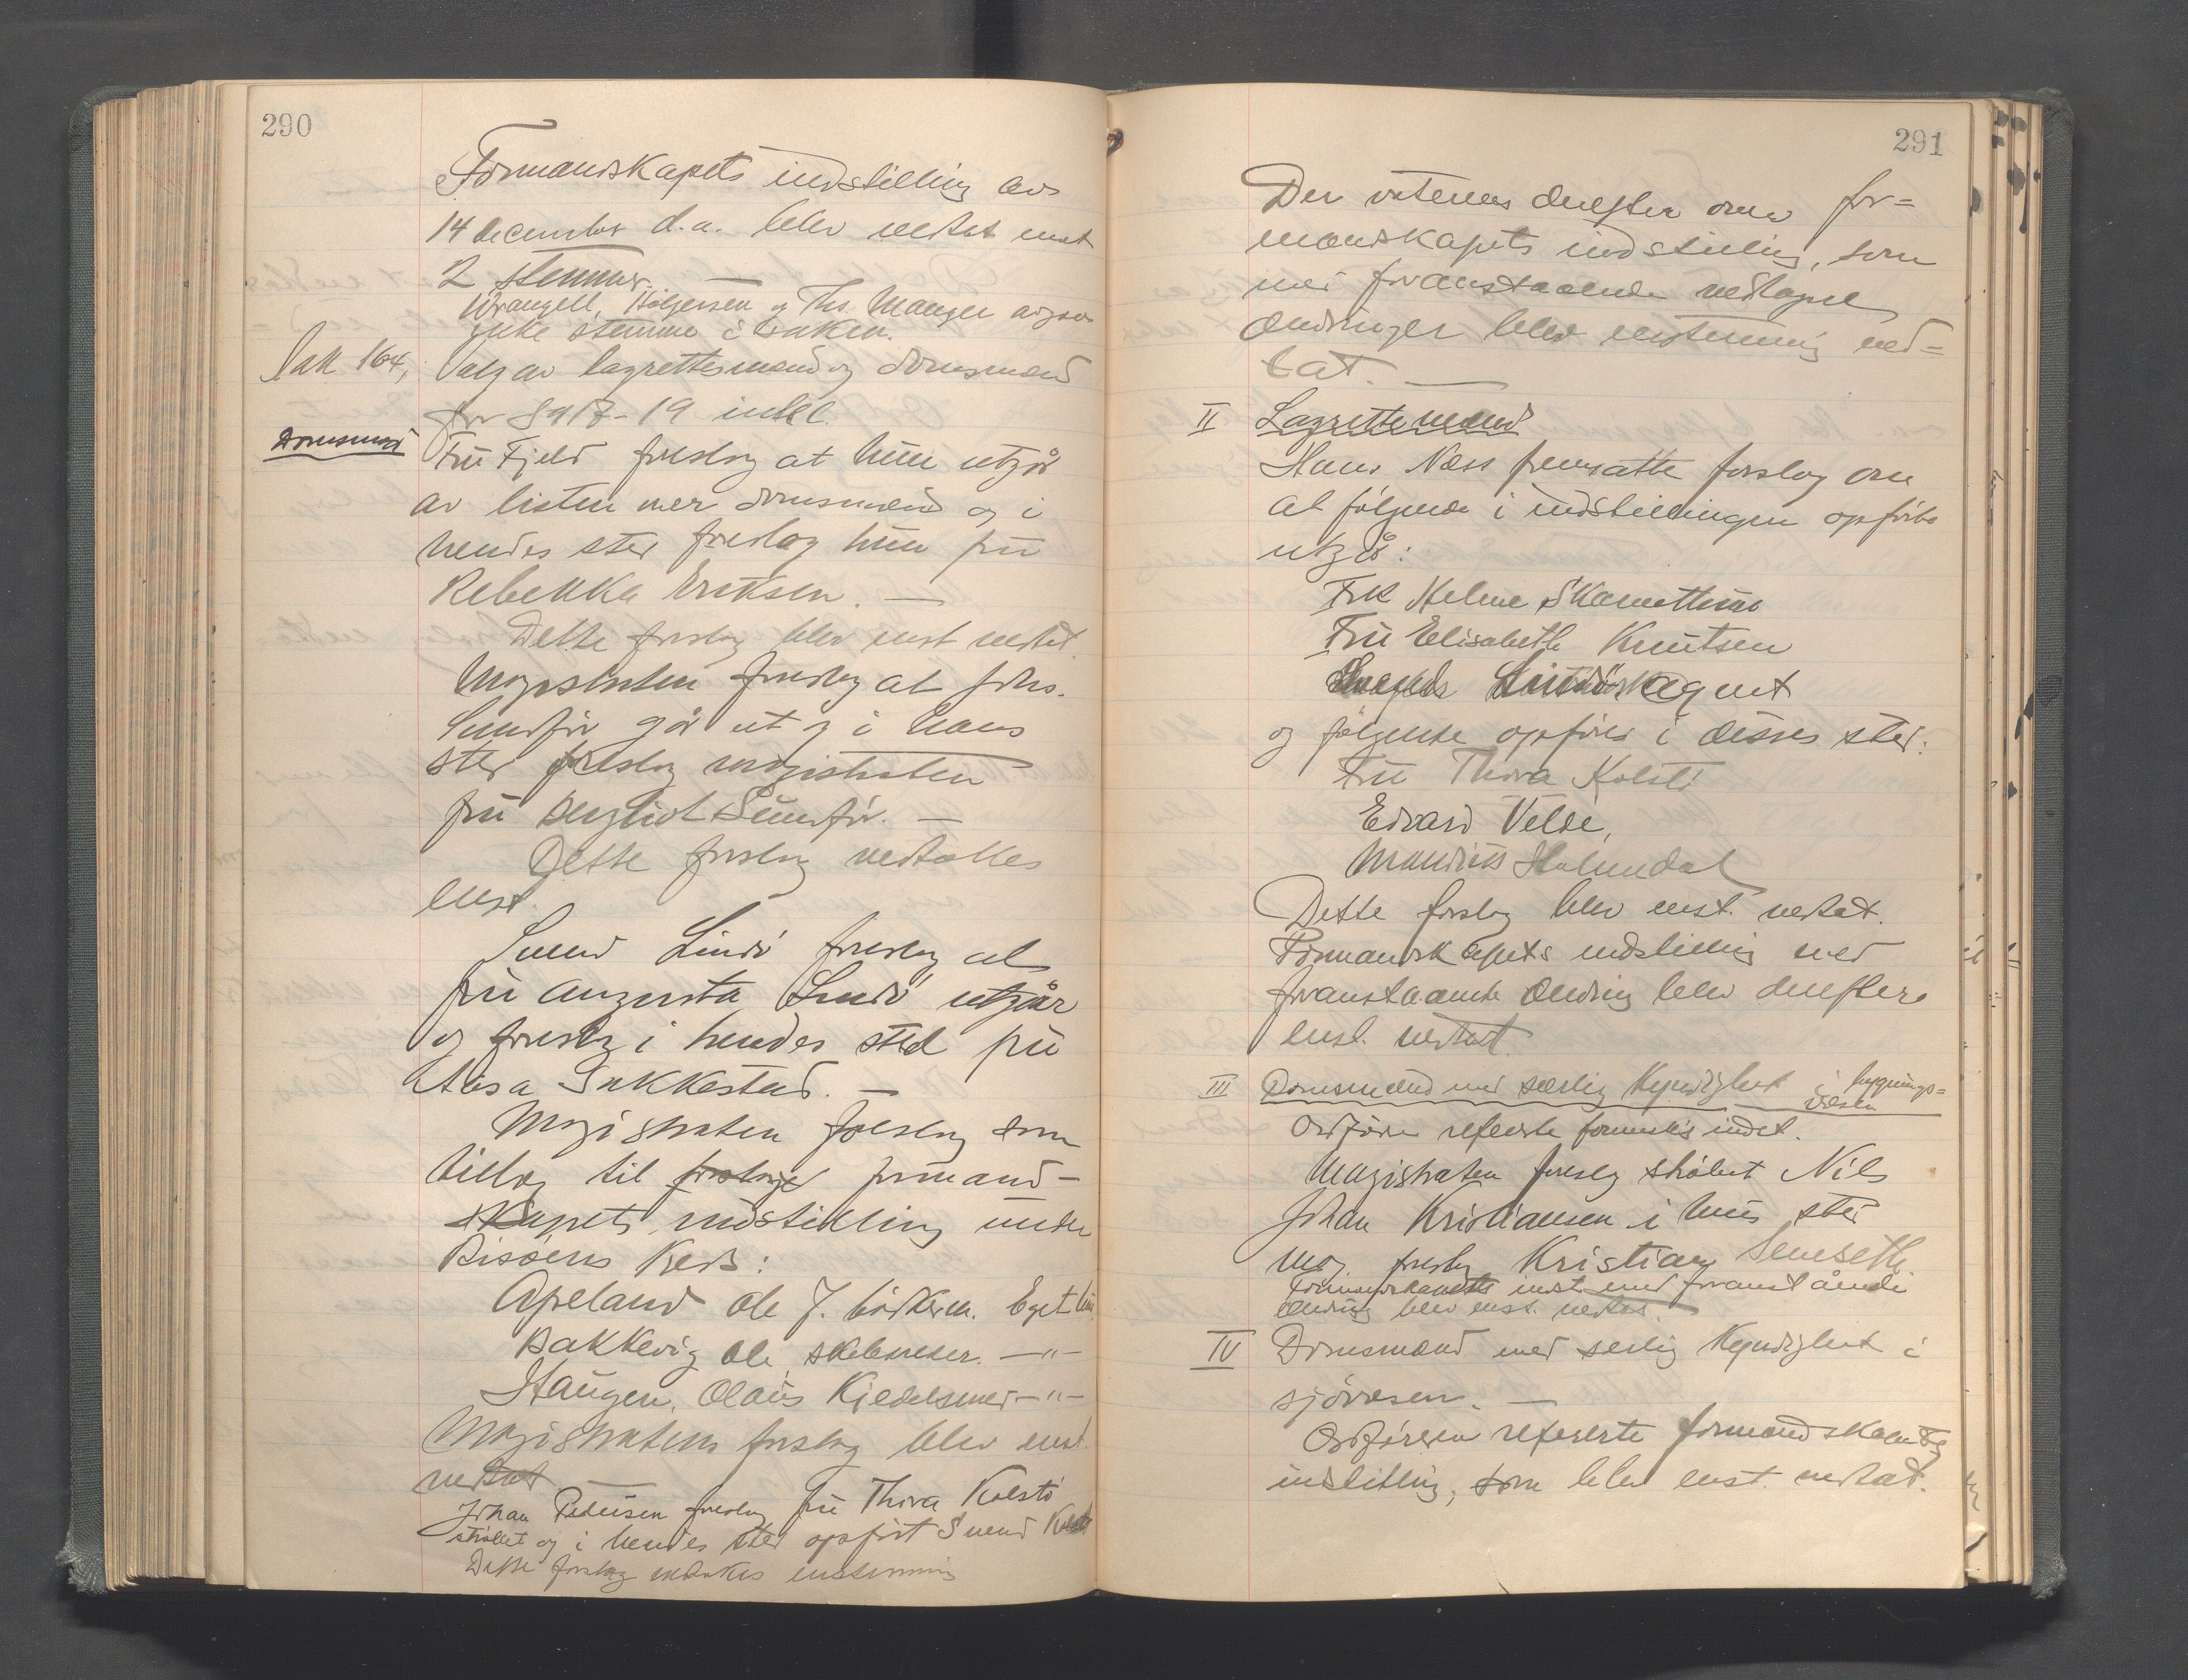 290
Formandskapets indstilling av
14 december d.a. blev vedtat mot
2 stemmer. —
Wrangell, Holgersen og Ths. Manger avgav
ikke stemme i saken.
Sak 164, Valg av lagrettesmænd og domsmænd
for 1917-19 inkl.
Domsmænd
Fru Fjeld foreslog at hun utgår
av listen over domsmænd og i
hendes sted foreslog hun fru
Rebekka Eriksen. —
Dette forslag blev enst. vedtat.
Magistraten foreslog at Johs.
Sundfør går ut og i hans
sted foreslog magistraten
fru Sundfør. —
Dette forslag vedtokes
enst.
Svend Lindø foreslog at
fru Augusta Lindø utgår
og foreslog i hendes sted fru
Aasa Sakkestad. —
Magistraten foreslog som
tillæg til forslaget formand-
skapets indstilling under
Risøens kreds:
Apeland Ole J. bødkerm. Eget hus
Bakkevig Ole skibsreder. —"—
Haugen, Olaus Kjedelsmed —"—
Magistratens forslag blev enst.
vedtat —
Johan Pedersen foreslog fru Thora Kolstø
strøket og i hendes sted opført Svend Kolstø
Dette forslag vedtokes enstemmig
291
Der voteres derefter over for=
mandskapets indstilling, som
med foranstaaende vedtagne
ændringer blev enstemmig ved=
tat. —
II Lagrettemænd
Hans Næss fremsatte forslag om
at følgende i indstillingen opførte
utgår:
Frk Helene
Fru Elisabeth Knutsen
agent
og følgende opføres i disses sted:
Fru Thora Kolstø
Edvard Velde,
Mandius Halmdal
Dette forslag blev enst. vedtat.
Formandskapets indstilling med
foranstaaende ændring blev derefter
enst. vedtat.
III Domsmænd med særlig kyndighet i bygnings=
væsen
Ordfører refererte formsk's indst.
Magistraten foreslog strøket Nils
Johan Kristiansen i hvis sted
mag. foreslog Kristian Semseth.
Formandskapets indst. med foranstående
ændring blev enst. vedtat. —
IV Domsmænd med særlig kyndighet i
sjøvæsen. —
Ordføreren refererte formandskapets
indstilling, som blev enst. vedtat.